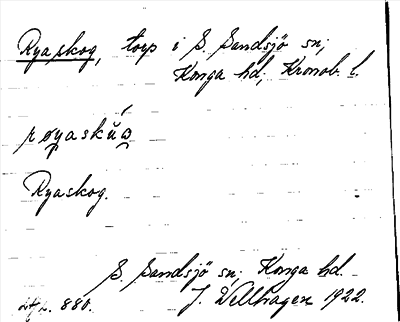 Ryaskog, torp i S. Sandsjö sn;
Konga hd; Kronob. l.
røyaskúə
Ryaskog.
S. Sandsjö sn; Konga hd.
880. J. Wellhagen 1922.